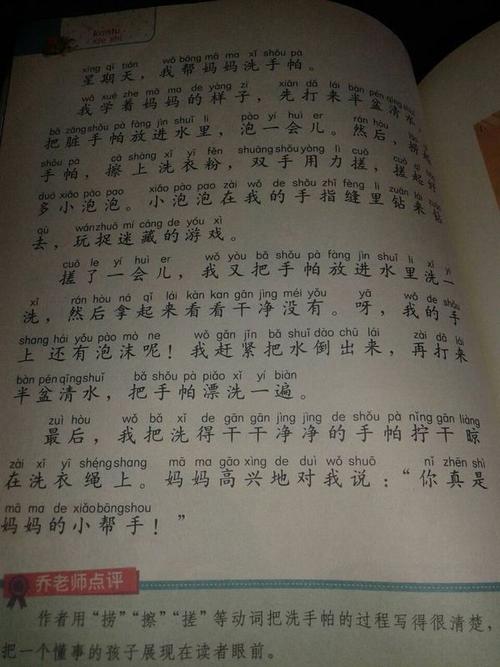 xīng qī tiān wǒ bāng mā ma xǐ shǒu pà
星期天，我帮妈妈洗手帕。
wǒ xué zhe mā ma de yàng zi xiān dǎ lái bàn pén qīng shuǐ
我学着妈妈的样子，先打来半盆清水，
bǎ zāng shǒu pà fàng jìn shuǐ lǐ pào yí huì er rán hòu
把脏手帕放进水里，泡一会儿。然后，捞起
shǒu pà cā shàng xǐ yī fěn shuāng shǒu yòng lì cuō
手帕，擦上洗衣粉，双手用力搓，搓起好
duō xiǎo pào pao xiǎo pào pao zài wǒ de shǒu zhǐ fèng lǐ zuān lái
多小泡泡。小泡泡在我的手指缝里钻来钻
qù wán zhuō mí cáng de yóu xì
去，玩捉迷藏的游戏。
cuō le yí huì er wǒ yòu bǎ shǒu pà fàng jìn shuǐ lǐ xǐ
搓了一会儿，我又把手帕放进水里洗一
xǐ rán hòu ná qǐ lái kàn kan gān jìng méi yǒu yā wǒ de shǒu
洗，然后拿起来看看干净没有。呀，我的手
shang hái yǒu pào mò ne wǒ gǎn jǐn bǎ shuǐ dào chū lái zài dǎ lái
上还有泡沫呢！我赶紧把水倒出来，再打来
bàn pén qīng shuǐ bǎ shǒu pà piǎo xǐ yí biàn
半盆清水，把手帕漂洗一遍。
zuì hòu wǒ bǎ xǐ de gān gān jìng jìng de shǒu pà nǐng gān liàng
最后，我把洗得干干净净的手帕拧干晾
zài xǐ yī shéng shang mā ma gāo xìng de duì wǒ shuō nǐ zhēn shì
在洗衣绳上。妈妈高兴地对我说：“你真是
mā ma de xiǎo bāng shou
妈妈的小帮手！”
乔老师点评
作者用“捞”“擦”“搓”等动词把洗手帕的过程写得很清楚，
把一个懂事的孩子展现在读者眼前。